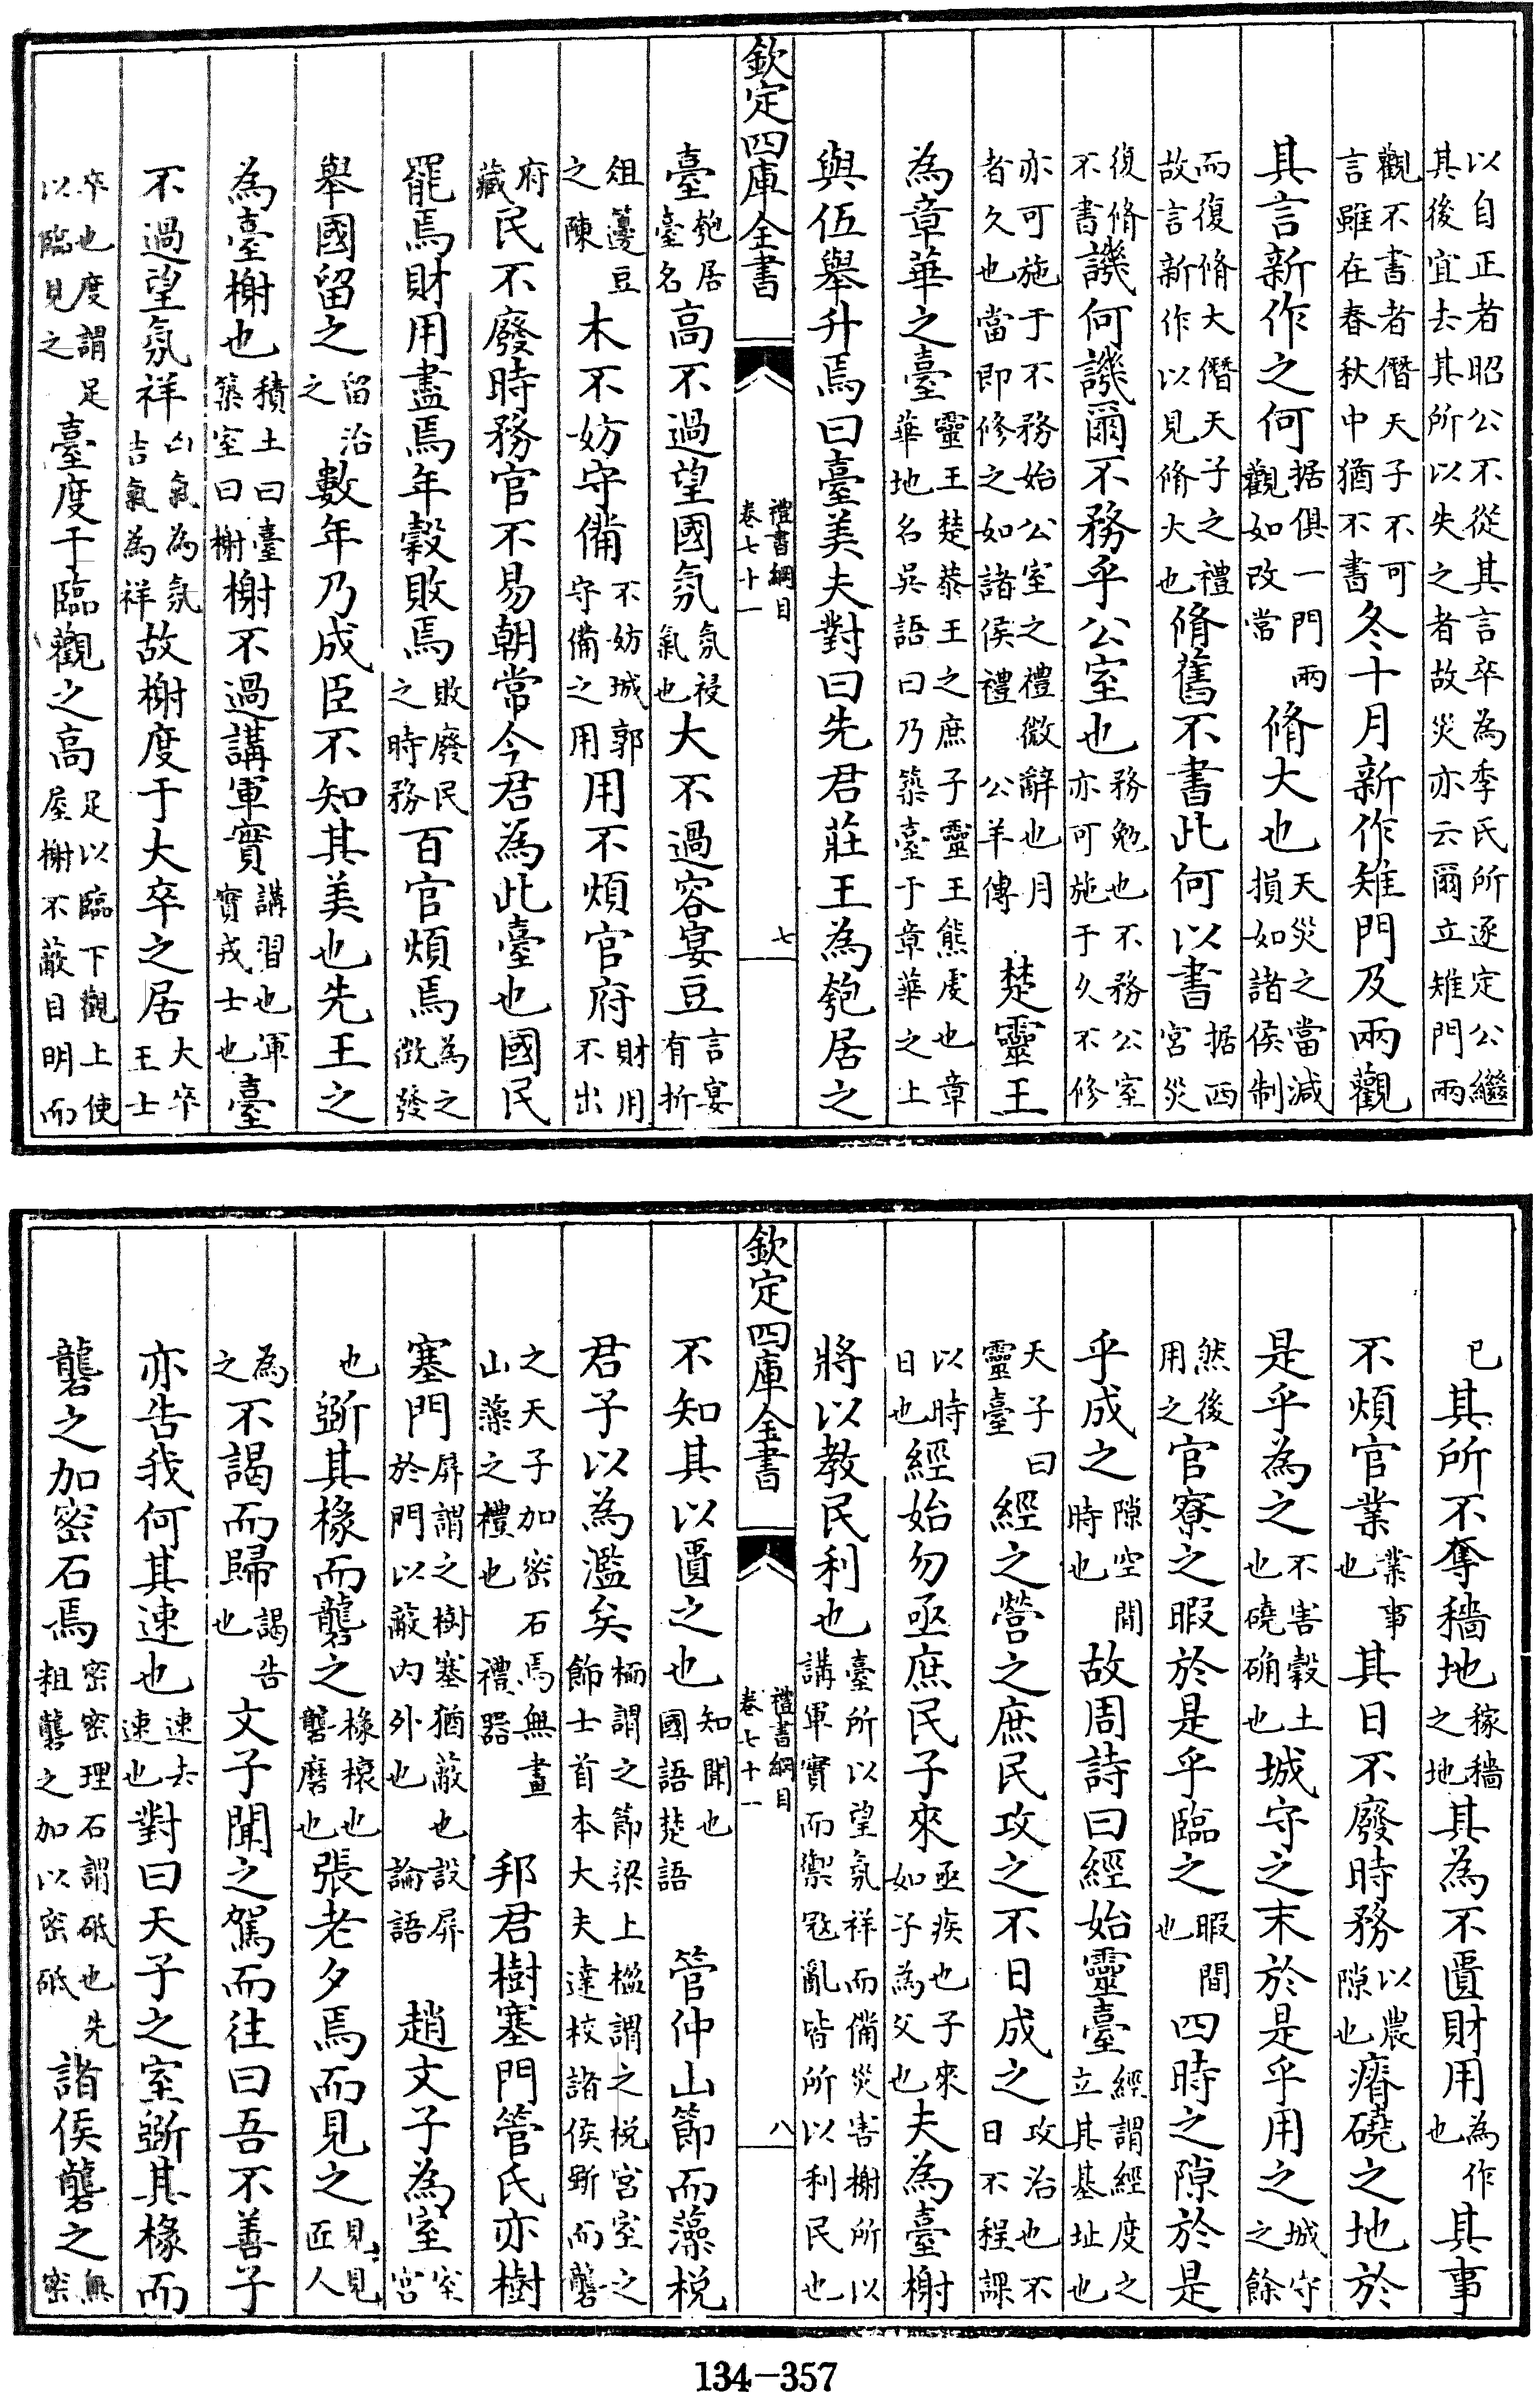 以自正者昭公不從其言卒為季氏所逐定公繼
其後宜去其所以失之者故災亦云爾立雉門兩
觀不書者僭天子不可
言雖在春秋中猶不書
冬十月新作雉門及兩觀
其言新作之何
据俱一門兩
觀如改當
脩大也
天災之當減
損如諸侯制
而復脩大僭天子之禮
故言新作以見脩大也
脩舊不書此何以書
据西
宮災
復脩
不書
譏何譏爾不務乎公室也
務勉也不務公室
亦可施于久不修
亦可施于不務始公室之禮微辭也月
者久也當即修之如諸侯禮 公羊傳
楚靈王
為章華之臺
靈王楚恭王之庶子靈王熊虔也章
華地名吳語曰乃築臺于章華之上
與伍舉升焉曰臺美夫對曰先君莊王為匏居之
欽定四庫全書
禮書綱目
卷七十一
七
臺
匏居
臺名
高不過望國氛
氛祲
氣也
大不過容宴豆
言宴
有折
俎籩豆
之陳
木不妨守備
不妨城郭
守備之用
用不煩官府
財用
不出
府
藏
民不廢時務官不易朝常今君為此臺也國民
罷焉財用盡焉年穀敗焉
敗廢民
之時務
百官煩焉
為之
徵發
舉國留之
留治
之
數年乃成臣不知其美也先王之
為臺榭也
積土曰臺
築室曰榭
榭不過講軍實
講習也軍
實戎士也
臺
不過望氛祥
凶氣為氛
吉氣為祥
故榭度于大卒之居
大卒
王士
卒也度謂足
以臨見之
臺度于臨觀之高
足以臨下觀上使
屋榭不蔽目明而
已
其所不奪穡地
稼穡
之地
其為不匱財用
為作
也
其事
不煩官業
業事
也
其日不廢時務
以農
隙也
瘠磽之地於
是乎為之
不害穀土
也磽确也
城守之末於是乎用之
城守
之餘
然後
用之
官寮之暇於是乎臨之
暇間
也
四時之隙於是
乎成之
隙空閒
時也
故周詩曰經始靈臺
經謂經度之
立其基址也
天子曰
靈臺
經之營之庶民攻之不日成之
攻治也不
日不程課
以時
日也
經始勿亟庶民子來
亟疾也子來
如子為父也
夫為臺榭
將以教民利也
臺所以望氛祥而備災害榭所以
講軍實而禦宼亂皆所以利民也
欽定四庫全書
禮書綱目
卷七十一
八
不知其以匱之也
知聞也
國語楚語
管仲山節而藻梲
君子以為濫矣
栭謂之節梁上楹謂之梲宮室之
飾士首本大夫達校諸侯斲而礱
之天子加密石焉無畫
山藻之禮也 禮器
邦君樹塞門管氏亦樹
塞門
屏謂之樹塞猶蔽也設屏
於門以蔽內外也 論語
趙文子為室
室
宮
也
斲其椽而礱之
椽榱也
礱磨也
張老夕焉而見之
見見
匠人
為
之
不謁而歸
謁告
也
文子聞之駕而往曰吾不善子
亦告我何其速也
速去
速也
對曰天子之室斲其椽而
礱之加密石焉
密密理石謂砥也先
粗礱之加以密砥
諸侯礱之
無
密
134-357